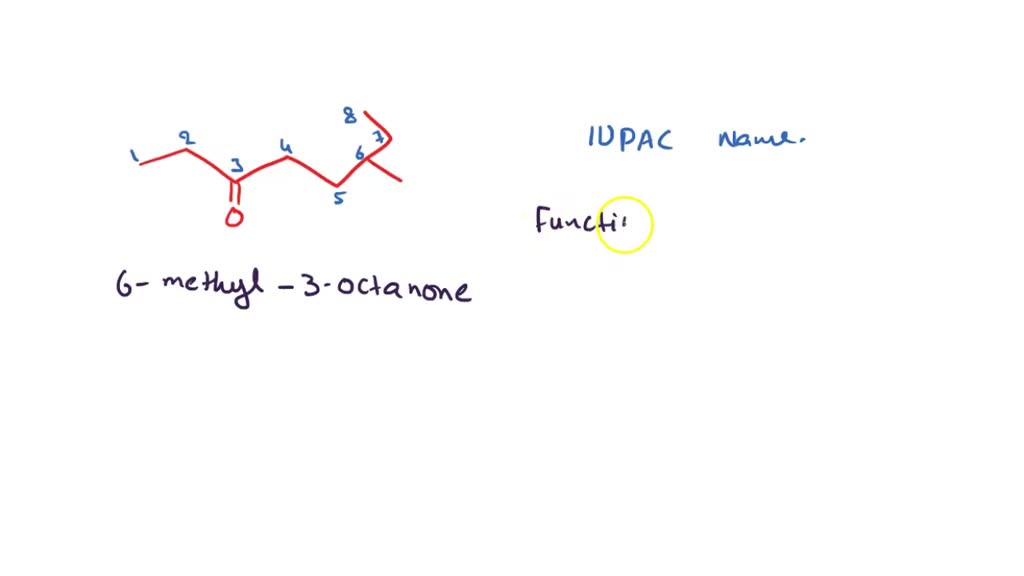 8
7
1
2
3
4
5
6
O
IUPAC Name.
Functi
6-methyl-3-octanone